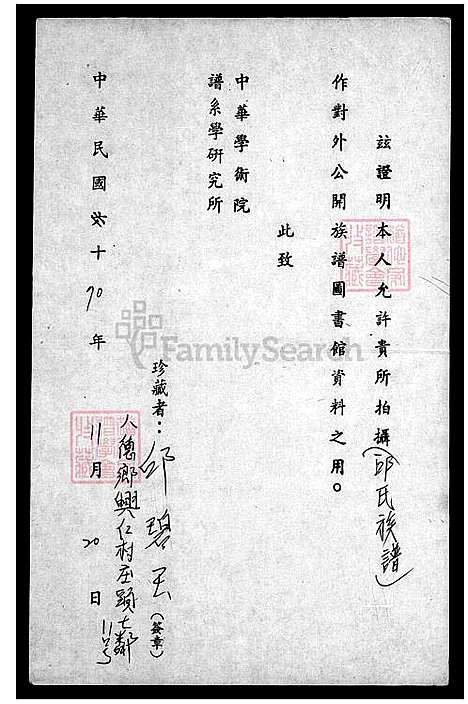 茲證明本人允許貴所拍攝(邱氏族譜)
作對外公開族譜圖書館資料之用。
此致
中華學術院
譜系學研究所
珍藏者：邱碧玉(簽章)
仁德鄉興仁村庄頭七鄰11号
中華民國六十70年11月20日
FamilySearch